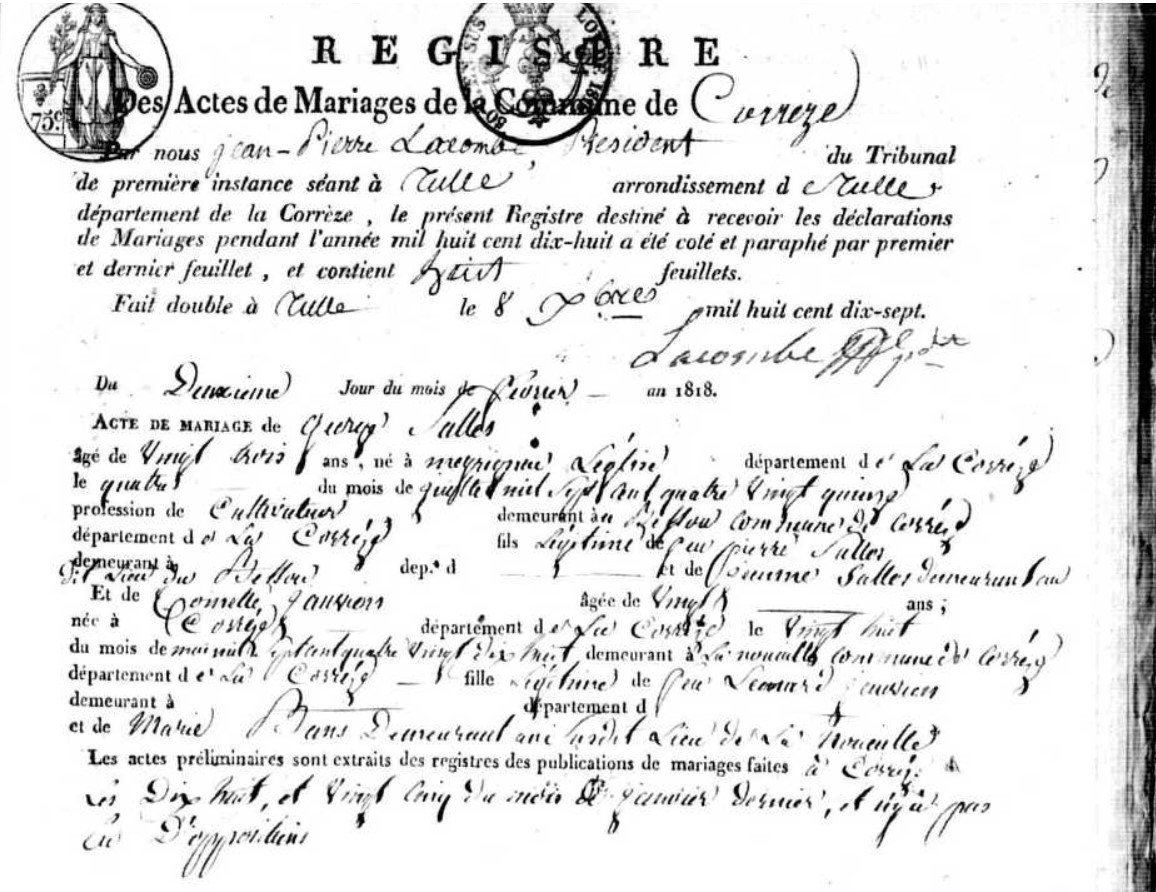 REGISTRE
75c.
EN SUS
LOI DE 18
Des Actes de Mariages de la Commune de Correze
Par nous jean-Pierre Lacombe, President du Tribunal
de première instance séant à Tulle arrondissement d e Tulle
département de la Corrèze, le présent Registre destiné à recevoir les déclarations
de Mariages pendant l'année mil huit cent dix-huit a été coté et paraphé par premier
et dernier feuillet, et contient huit feuillets.
Fait double à Tulle le 8 Xbres mil huit cent dix-sept.
Lacombe
Du Deuxieme Jour du mois de fevrier an 1818.
ACTE DE MARIAGE de Salles
âgé de Vingt trois ans, né à meyrignac Léglise département d e La Corréze
le quatre du mois de mil Sept cent quatre Vingt quinze
profession de Cultivateur demeurant au Bessou commune de Corréze
département d e La Corréze fils Légitime de feu pierre Salles
demeurant à dép.t d et de Salles demeurant au
dit Lieu du Bessou
Et de âgée de Vingt ans;
née à Corréze département d e La Corréze le Vingt huit
du mois de mai mil Sept cent quatre Vingt dix huit demeurant à La commune de Corréze
département d e La Corréze fille Légitime de feu Leonard
demeurant à département d
et de Marie Bans Demeurant au Susdit Lieu de La
Les actes préliminaires sont extraits des registres des publications de mariages faites à Corréze
Les Dix huit, et Vingt Cinq du mois de janvier dernier, et n'y a pas
Eu D'oppositions